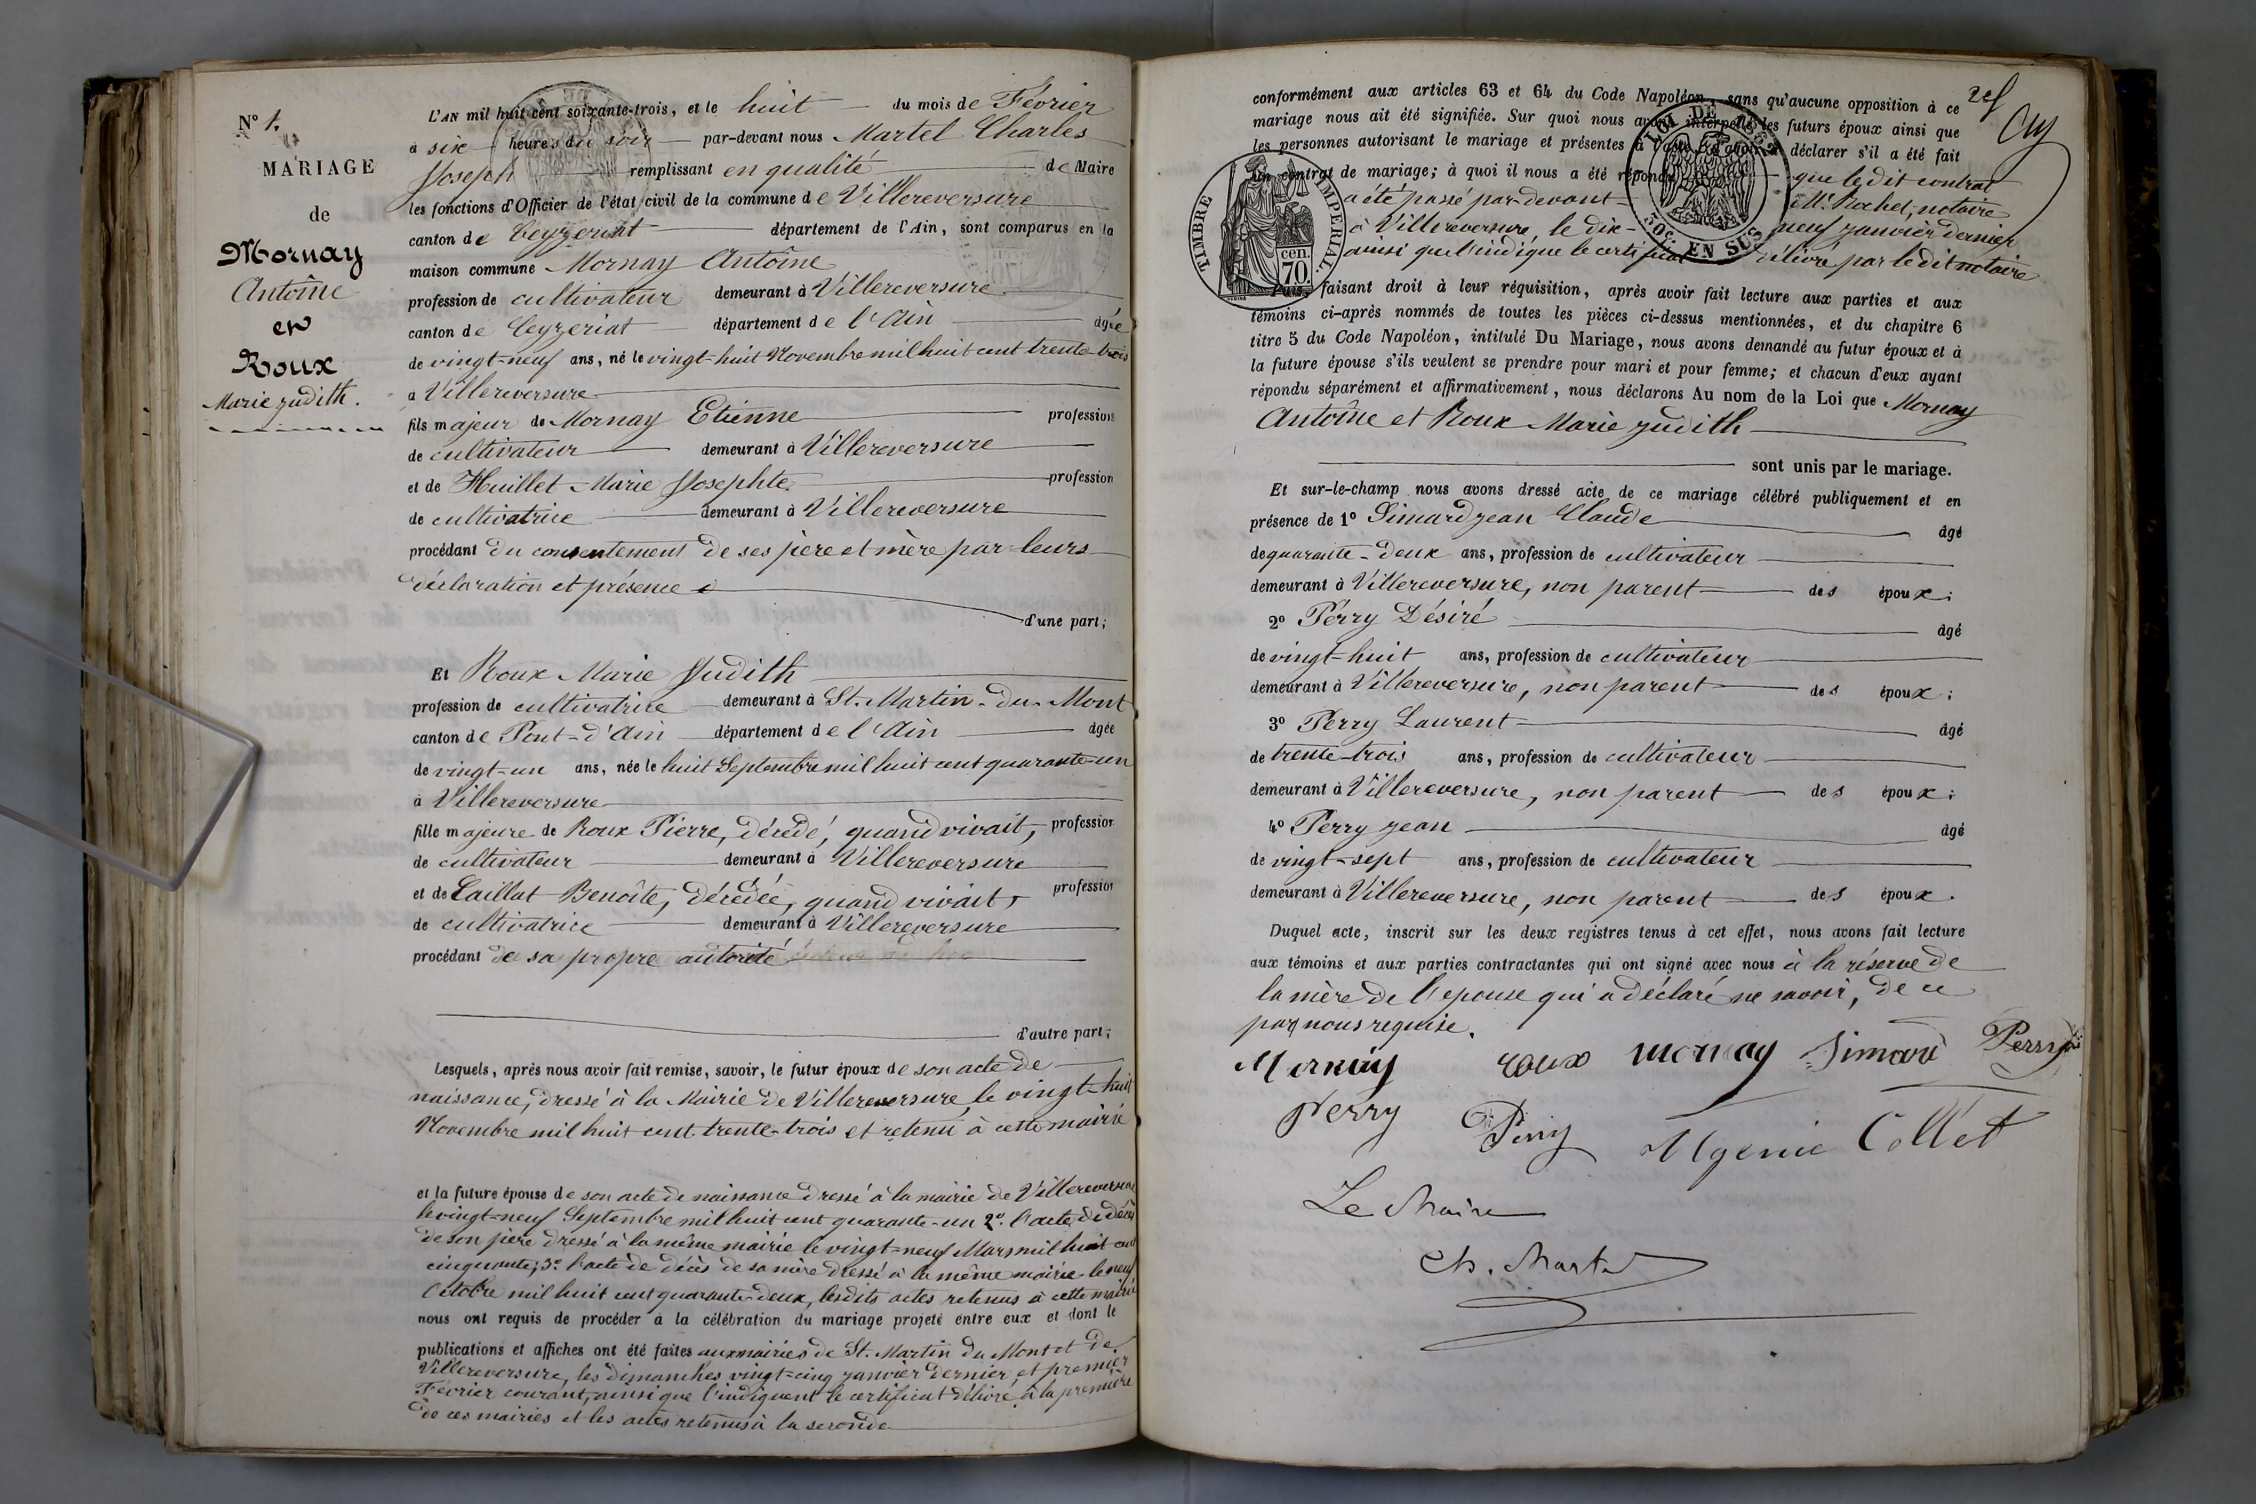 N° 1.
MARIAGE
de
Mornay
Antoine
et
Roux
Marie Judith.
L'AN mil huit cent soixante-trois, et le huit du mois de Février
à six heures du soir par-devant nous Martel Charles
Joseph remplissant en qualité de Maire
les fonctions d'Officier de l'état civil de la commune de Villereversure
canton de Ceyzeriat département de l'Ain, sont comparus en la
maison commune Mornay Antoine
profession de cultivateur demeurant à Villereversure
canton de Ceyzeriat département de l'Ain âgé
de vingt-neuf ans, né le vingt-huit Novembre mil huit cent trente-trois
à Villereversure
fils majeur de Mornay Etienne profession
de cultivateur demeurant à Villereversure
et de Huillet Marie Josephte profession
de cultivatrice demeurant à Villereversure
procédant du consentement de ses père et mère par leurs
déclaration et présence
d'une part;
Et Roux Marie Judith
profession de cultivatrice demeurant à St. Martin-du-Mont
canton de Pont-d'Ain département de l'Ain âgée
de vingt-un ans, née le huit Septembre mil huit cent quarante-un
à Villereversure
fille majeure de Roux Pierre, décédé, quand vivait, profession
de cultivateur demeurant à Villereversure
et de Caillat Benoîte, décédée, quand vivait, profession
de cultivatrice demeurant à Villereversure
procédant de sa propre autorité
d'autre part;
Lesquels, après nous avoir fait remise, savoir, le futur époux de son acte de
naissance, dressé à la Mairie de Villereversure le vingt-huit
Novembre mil huit cent trente-trois et retenu à cette mairie
et la future épouse de son acte de naissance dressé à la mairie de Villereversure
le vingt-neuf Septembre mil huit cent quarante-un 2° l'acte de décès
de son père dressé à la même mairie le vingt-neuf Mars mil huit cent
cinquante; 3° l'acte de décès de sa mère dressé à la même mairie le neuf
Octobre mil huit cent quarante-deux, lesdits actes retenus à cette mairie
nous ont requis de procéder à la célébration du mariage projeté entre eux et dont le
publications et affiches ont été faites aux mairies de St. Martin du Mont et de
Villereversure, les dimanches vingt-cinq janvier dernier et premier
Février courant, ainsi que l'indiquent le certificat délivré à la première
de ces mairies et les actes retenus à la seconde
conformément aux articles 63 et 64 du Code Napoléon, sans qu'aucune opposition à ce
mariage nous ait été signifiée. Sur quoi nous avons interpellé les futurs époux ainsi que
les personnes autorisant le mariage et présentes à déclarer s'il a été fait
un contrat de mariage; à quoi il nous a été répondu que ledit contrat
a été passé par-devant Me. Rochet, notaire
à Villereversure, le dix-neuf janvier dernier
ainsi que l'indique le certificat délivré par ledit notaire
TIMBRE IMPERIAL.
cen.
70
LOI DE
50c. EN SUS
Puis, faisant droit à leur réquisition, après avoir fait lecture aux parties et aux
témoins ci-après nommés de toutes les pièces ci-dessus mentionnées, et du chapitre 6
titre 5 du Code Napoléon, intitulé Du Mariage, nous avons demandé au futur époux et à
la future épouse s'ils veulent se prendre pour mari et pour femme; et chacun d'eux ayant
répondu séparément et affirmativement, nous déclarons Au nom de la Loi que Mornay
Antoine et Roux Marie Judith
sont unis par le mariage.
Et sur-le-champ nous avons dressé acte de ce mariage célébré publiquement et en
présence de 1° Simard Jean Claude âgé
de quarante-deux ans, profession de cultivateur
demeurant à Villereversure, non parent des époux;
2° Pérry Désiré âgé
de vingt-huit ans, profession de cultivateur
demeurant à Villereversure, non parent des époux;
3° Perry Laurent âgé
de trente-trois ans, profession de cultivateur
demeurant à Villereversure, non parent des époux;
4° Perry Jean âgé
de vingt-sept ans, profession de cultivateur
demeurant à Villereversure, non parent des époux.
Duquel acte, inscrit sur les deux registres tenus à cet effet, nous avons fait lecture
aux témoins et aux parties contractantes qui ont signé avec nous à la réserve de
la mère de l'epouse qui a déclaré ne savoir, de ce
par nous requise.
Mornay roux mornay Simard Perry
Perry Perry Collet
Le Maire
Ch. Martel